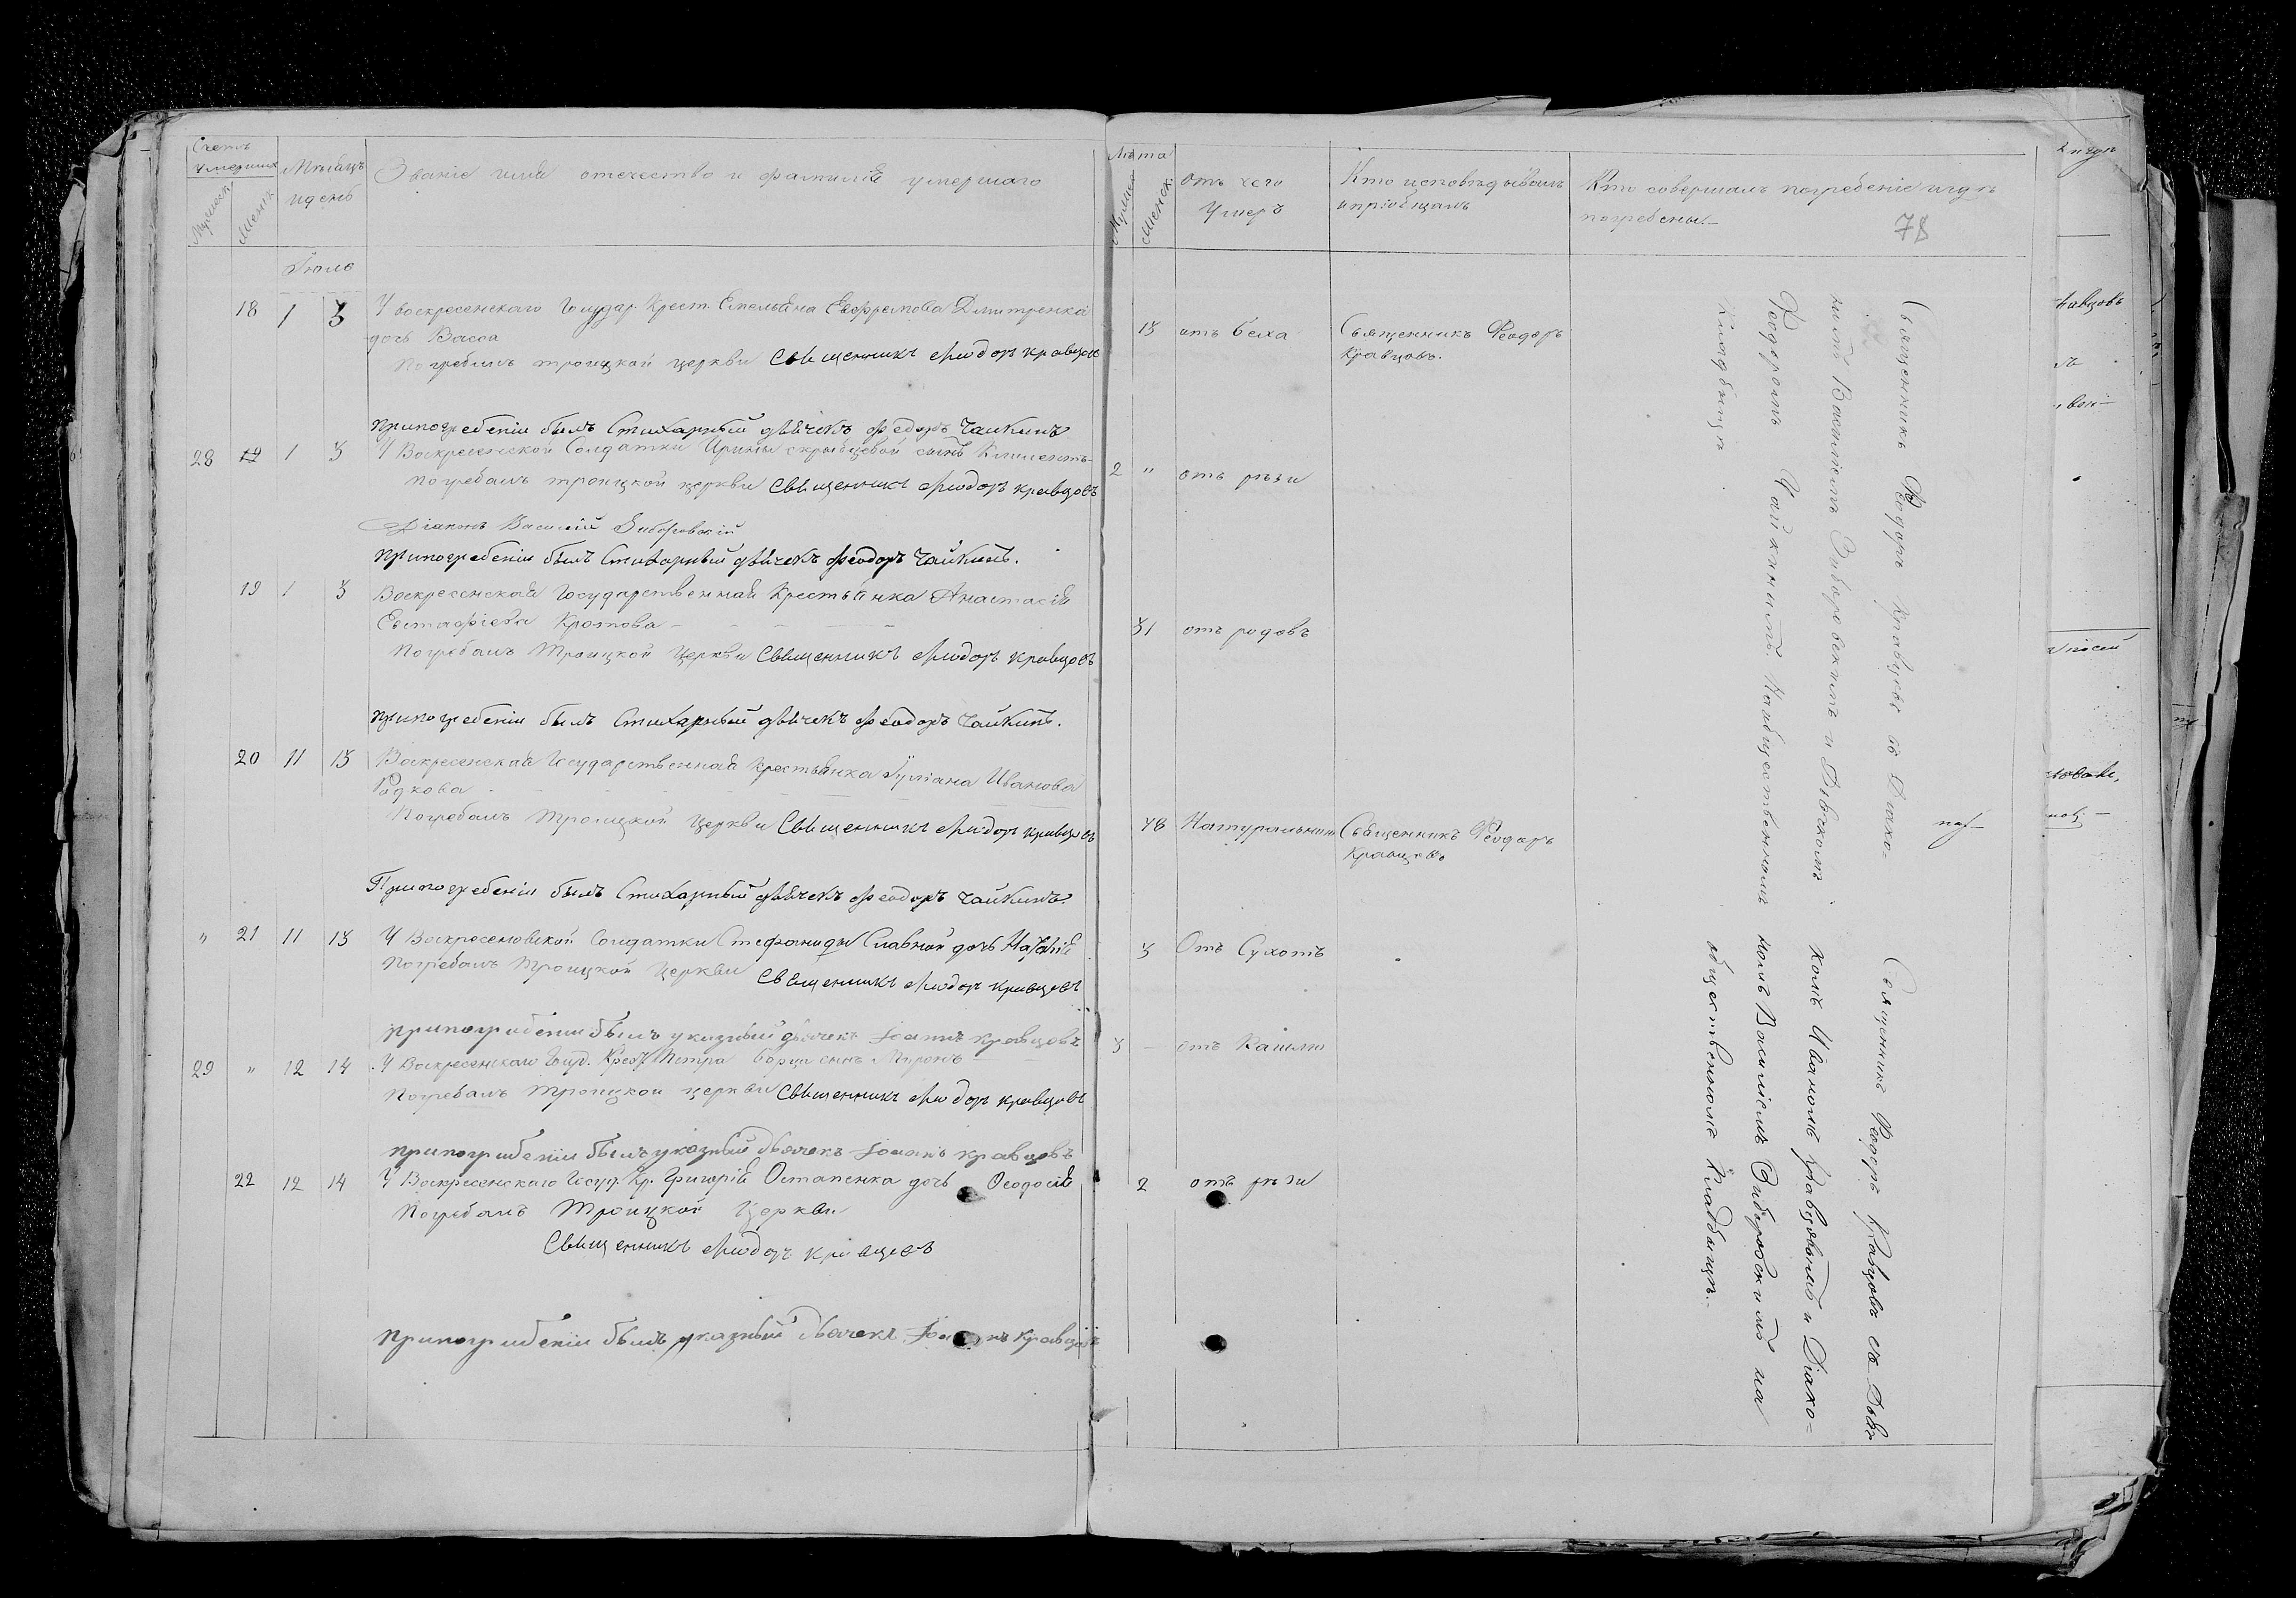 Счетъ умершихъ
Мужеск.
Женск.
Мѣсяцъ
и день
Званіе имя отечество и фамилія умершаго
Іюль
18 1 3 У воскресенскаго Государ. Крест. Емельяна Евфремова Дмитренка
дочь Васса
Погребалъ троицкой церкви Священникъ Ѳеодоръ Кравцовъ
При погребеніи былъ Стихарный дьячекъ Феодоръ Чайкинъ
28 19 1 3 У Воскресенской Солдатки Ирины сынъ Климентъ
Погребалъ троицкой церкви Священникъ Ѳеодоръ Кравцовъ
Діаконъ Василій Зиборовскій
При погребеніи былъ Стихарный дьячекъ Феодоръ Чайкинъ.
19 1 3 Воскресенская Государственная Крестьянка Анастасія
Евстафіева Кротова
Погребалъ Троицкой Церкви Священникъ Ѳеодоръ Кравцовъ
При погребеніи былъ Стихарный дьячекъ Феодоръ Чайкинъ.
20 11 13 Воскресенская Государственная Крестьянка Іуліана Иванова
Рядкова
Погребалъ Троицкой Церкви Священникъ Ѳеодоръ Кравцовъ
При погребеніи былъ Стихарный дьячекъ Феодоръ Чайкинъ.
" 21 11 13 У Воскресеновской Солдатки Стефаниды Славной дочь
Погребалъ Троицкой Церкви Священникъ Ѳеодоръ Кравцовъ
При погребеніи былъ указный дьячекъ Іоаннъ Кравцовъ
29 " 12 14 У Воскресенскаго Госуд. Крест. Петра Борщи сынъ Миронъ
Погребалъ Троицкой церкви Священникъ Ѳеодоръ Кравцовъ
При погребеніи былъ указный дьячекъ Іоаннъ Кравцовъ
22 12 14 У Воскресенскаго Госуд. Кр. Григорія Остапенка дочь Ѳеодосія
Погребалъ Троицкой Церкви
Священникъ Ѳеодоръ Кравцовъ
При погребеніи былъ указный дьячекъ Кравцовъ
Лѣта
Мужеск
Женск.
отъ чего
умеръ
Кто исповѣдывалъ
и пріобщалъ
Кто совершалъ погребеніе и гдѣ
погребены.
78
13 отъ Священникъ Ѳеодоръ
Кравцовъ.
2 " отъ рѣзи
31 отъ родовъ
78 Натуральною Священникъ Ѳеодоръ
Кравцовъ
3 Отъ Сухотъ
3 отъ Кашлю
2 отъ рѣзи
Священникъ Ѳеодоръ Кравцовъ съ Діако-
номъ Василіемъ Зиборовскимъ и Дьячкомъ
Ѳеодоромъ Чайкинымъ На общественномъ
Кладбищѣ
Священникъ Ѳеодоръ Кравцовъ съ Дьяч-
комъ Иваномъ Кравцовымъ и Діако-
номъ Василіемъ Зиборовскимъ на
общественномъ Кладбищѣ.